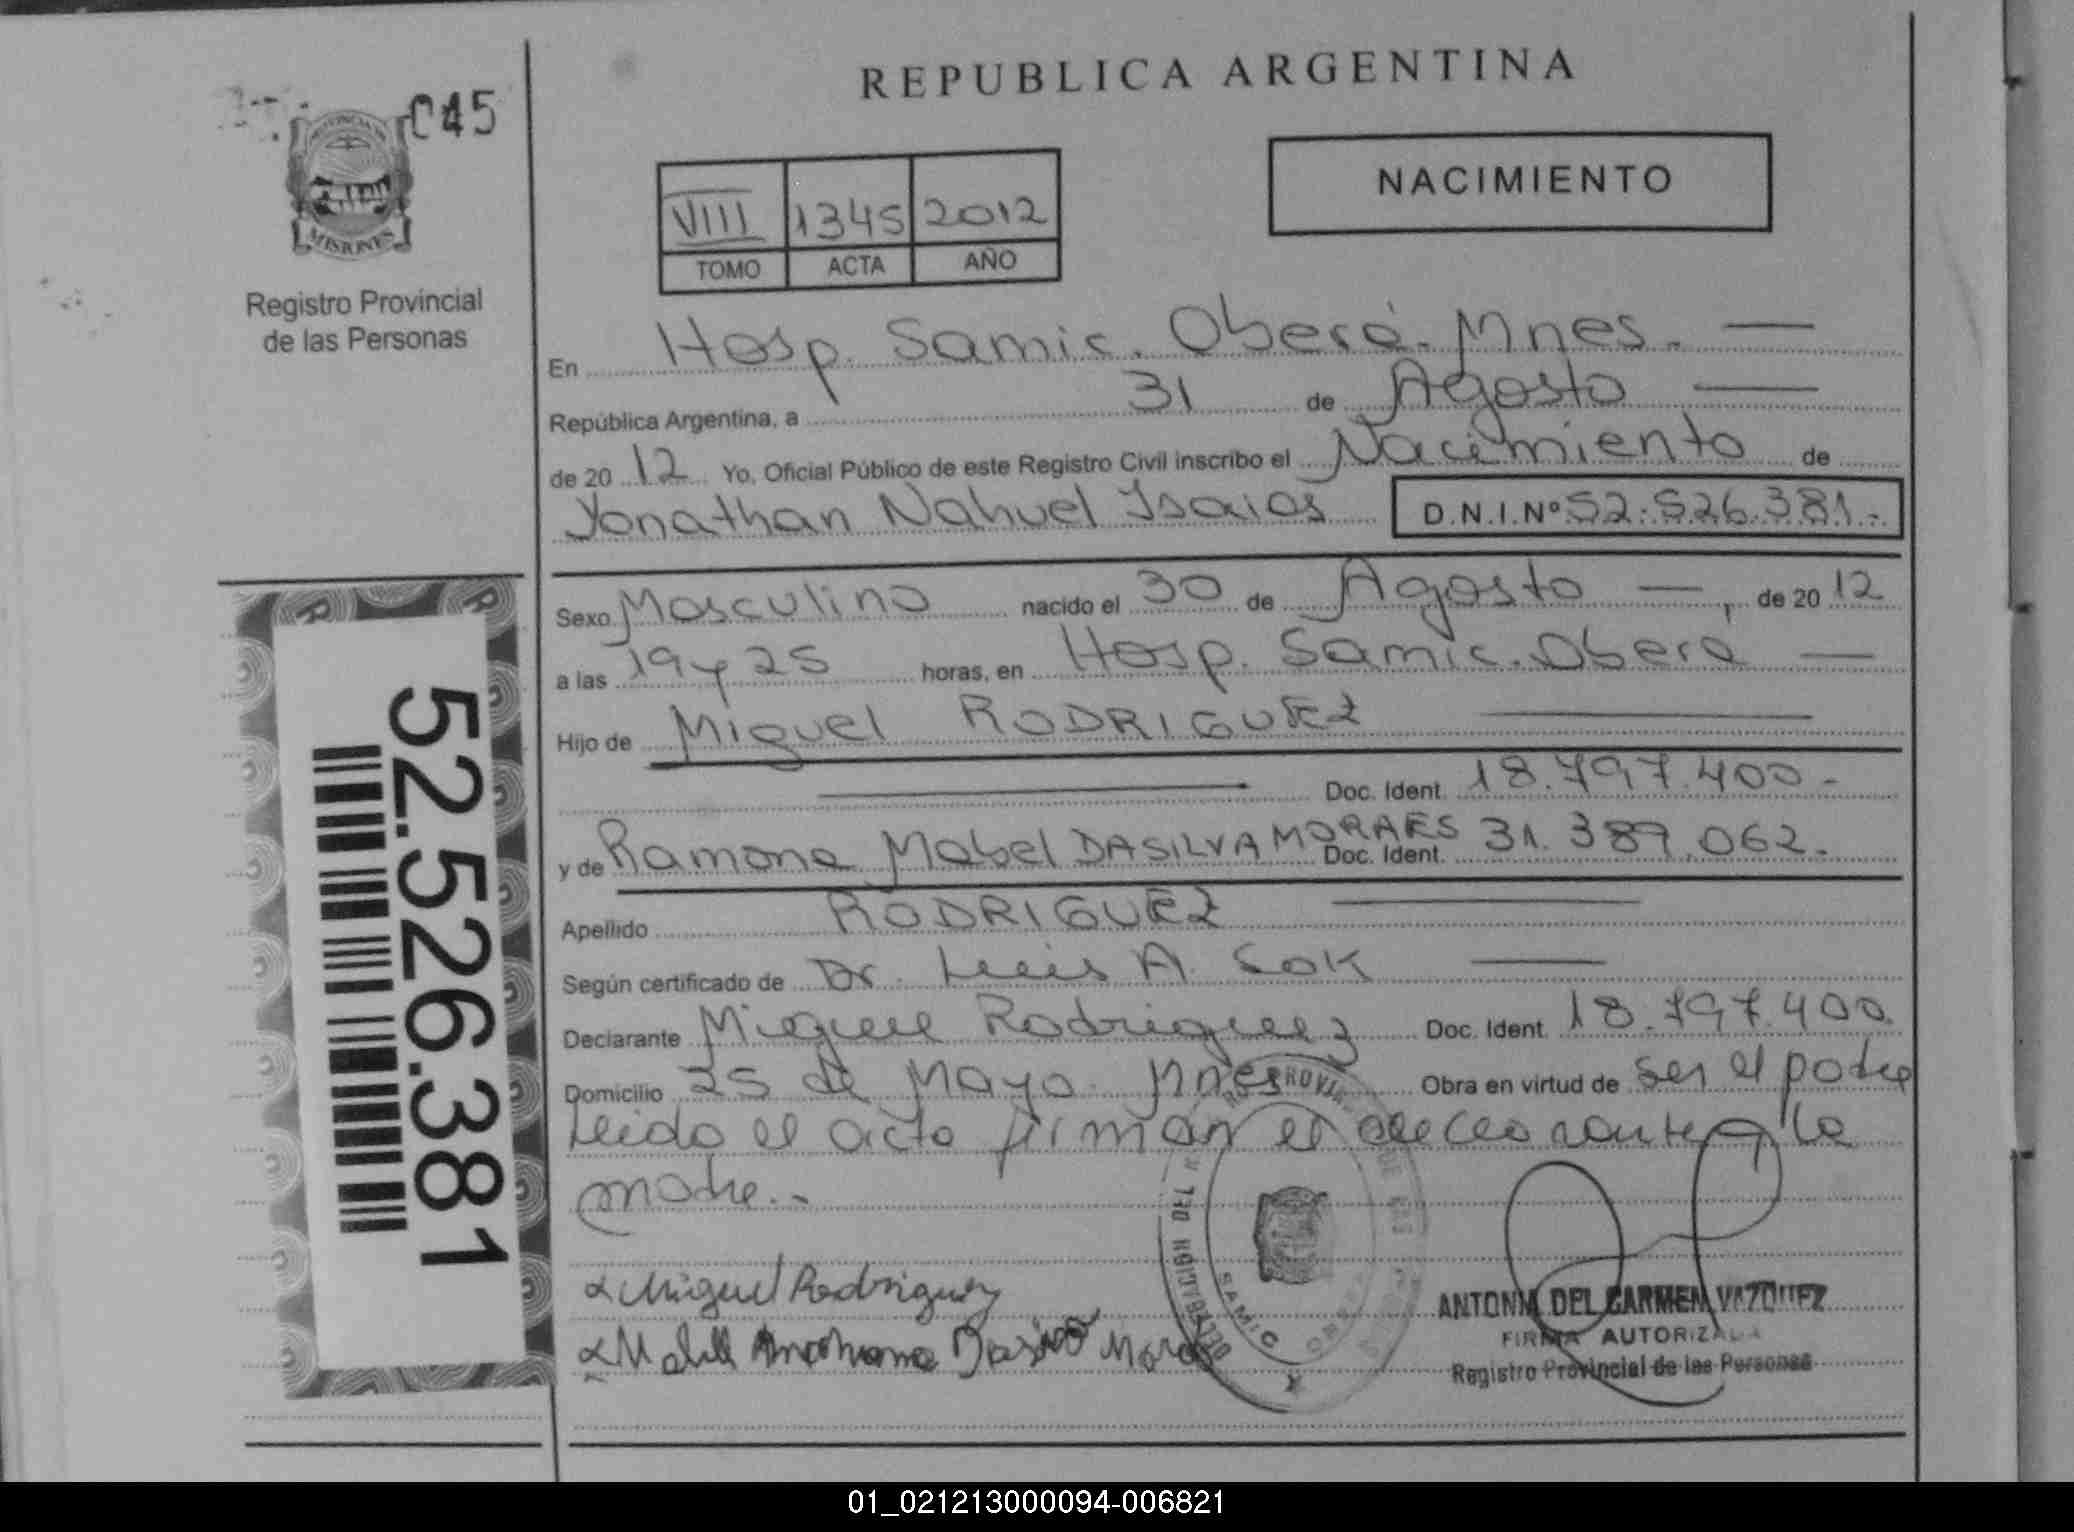 REPUBLICA ARGENTINA
045
MISIONES
Registro Provincial
de las Personas
NACIMIENTO
VIII 1345 2012
TOMO ACTA AÑO
En Hosp. Samic. Oberá. Mnes. —
República Argentina, a 31 de Agosto —
de 20 12 Yo, Oficial Público de este Registro Civil inscribo el Nacimiento de
Yonathan Nahuel Isaias D.N.I.Nº 52.526.381.-
Sexo Masculino nacido el 30 de Agosto —, de 20 12
a las 19 y 25 horas, en Hosp. Samic. Obera —
Hijo de Miguel RODRIGUEZ —
— Doc. Ident. 18.797.400.-
y de Ramona Mabel DASILVA MORAES Doc. Ident. 31.389.062.-
Apellido RODRIGUEZ —
Según certificado de Dr. Luis A. Sok —
Declarante Miguel Rodriguez Doc. Ident. 18.797.400.
Domicilio 25 de Mayo. Mnes Obra en virtud de ser el padre
Leido el acta firman el declarante y la
madre.-
Miguel Rodriguez
DEL
SAMIC
ANTONIA DEL CARMEN VAZQUEZ
FIRMA AUTORIZADA
Registro Provincial de las Personas
52.526.381
01_021213000094-006821